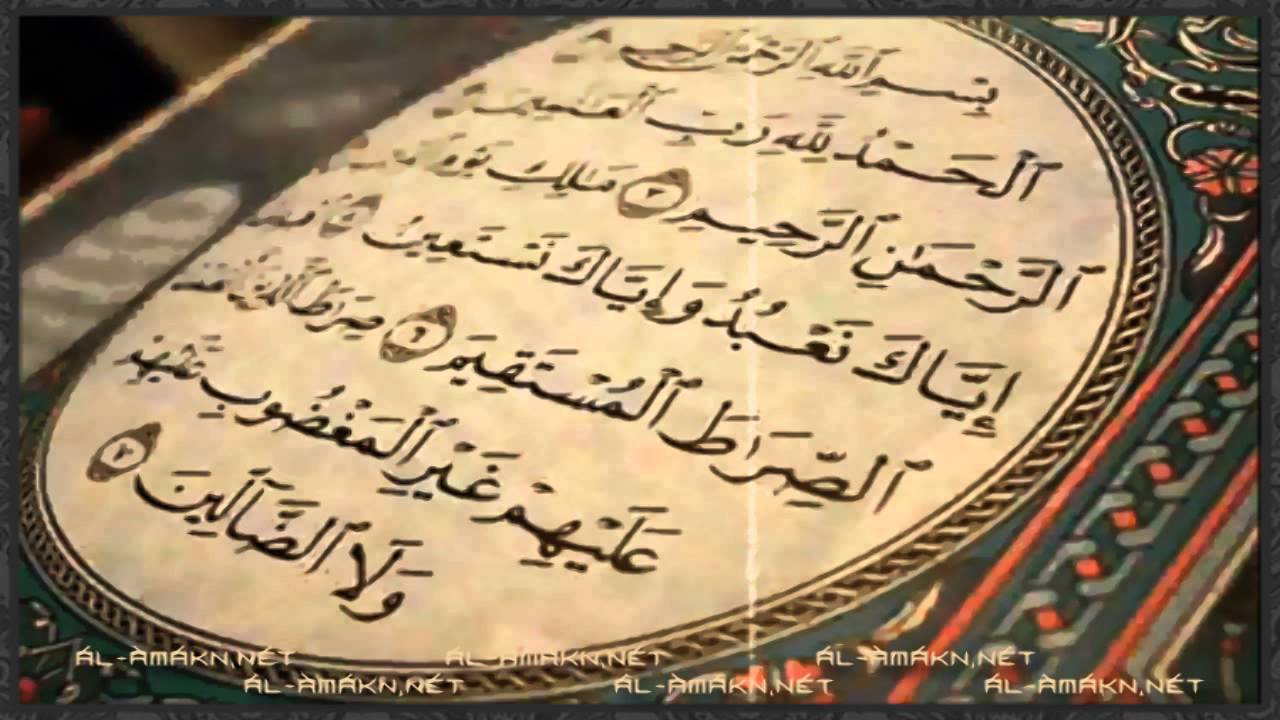 بِسْمِ ٱللَّهِ ٱلرَّحْمَٰنِ ٱلرَّحِيمِ
ٱلْحَمْدُ لِلَّهِ رَبِّ ٱلْعَٰلَمِينَ
ٱلرَّحْمَٰنِ ٱلرَّحِيمِ ٣ مَٰلِكِ يَوْمِ
إِيَّاكَ نَعْبُدُ وَإِيَّاكَ نَسْتَعِينُ ٥
ٱلصِّرَٰطَ ٱلْمُسْتَقِيمَ ٦ صِرَٰطَ ٱلَّذِينَ
عَلَيْهِمْ غَيْرِ ٱلْمَغْضُوبِ عَلَيْهِمْ
وَلَا ٱلضَّآلِّينَ ٧
ÁL-ÀMÁKN.NÉT ÁL-ÀMÁKN.NÉT ÁL-ÀMÁKN.NÉT
ÁL-ÀMÁKN.NÉT ÁL-ÀMÁKN.NÉT ÁL-ÀMÁKN.NÉT